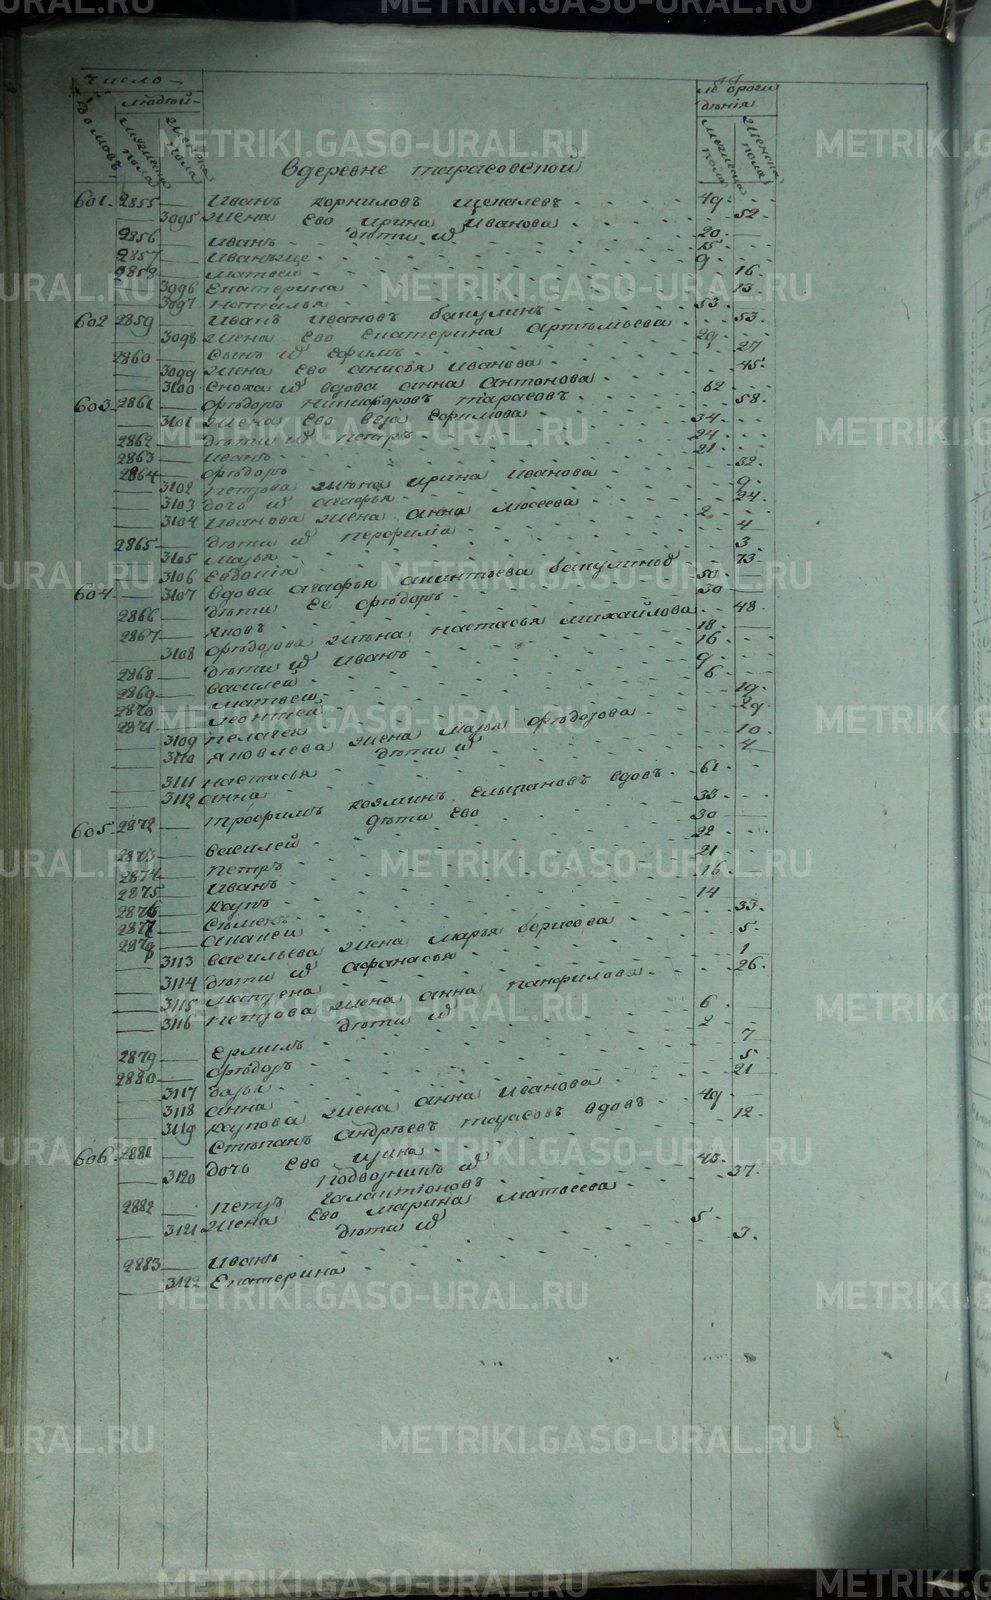 Число
людей
лета от рожде
нія
домовъ
мужеска пола
женска пола
мужеска пола
женска пола
Вдеревне тарасовской
601 2855 Иванъ корниловъ щепалевъ 49
3095 жена ево ирина Иванова 52
дѣти их
2856 иванъ 20
2857 иванъ же 15
2858 матвей 9
3096 Екатерина 16
3097 наталья 13
602 2859 Иванъ Ивановъ бакулинъ 53
3098 жена ево Екатерина артемьева 53
2860 Сынъ их ефимъ 29
3099 жена ево анисья иванова 27
3100 сноха их вдова анна антонова 45
603 2861 фѣдоръ никифоровъ тарасовъ 62
3101 жена ево вера ефимова 58
2862 дѣти их петръ 34
2863 иванъ 24
2864 фѣдоръ 21
3102 петрова жена ирина иванова 32
3103 дочь их агафья 9
3104 иванова жена анна мосеева 24
2865 дѣти их перфилій 2
3105 марья 4
3106 Евдокія 3
604 3107 вдова агафья акинтьева бакулиных 73
2866 дѣти ее фѣдоръ 50
2867 яковъ 30
3108 фѣдорова жена настасья михайлова 48
2868 дѣти их иванъ 18
2869 василей 16
2870 матвей 9
2871 леонтей 6
3109 пелагея 19
3110 яковлева жена марья фѣдорова 29
дѣти их
3111 настасья 10
3112 анна 4
605 2872 трофимъ козминъ елыкановъ вдовъ 61
дѣти ево
2873 василей 33
2874 петръ 30
2875 иванъ 22
2876 карпъ 21
2877 сѣменъ 16
2878 ананей 14
3113 васильева жена марья борисова 33
3114 дѣти их афанасья 5
3115 матрена 1
3116 петрова жена анна панфилова 26
дѣти их
2879 ермилъ 6
2880 фѣдоръ 2
3117 дарья 7
3118 анна 5
3119 карпова жена анна иванова 21
606 2881 Стѣпанъ андрѣевъ тарасовъ вдовъ 49
3120 дочь ево ирина 12
подворникъ их
2882 петръ галактіоновъ 43
3121 жена ево марина матвеева 37
дѣти их
2883 иванъ 5
3122 Екатерина 3
METRIKI.GASO-URAL.RU